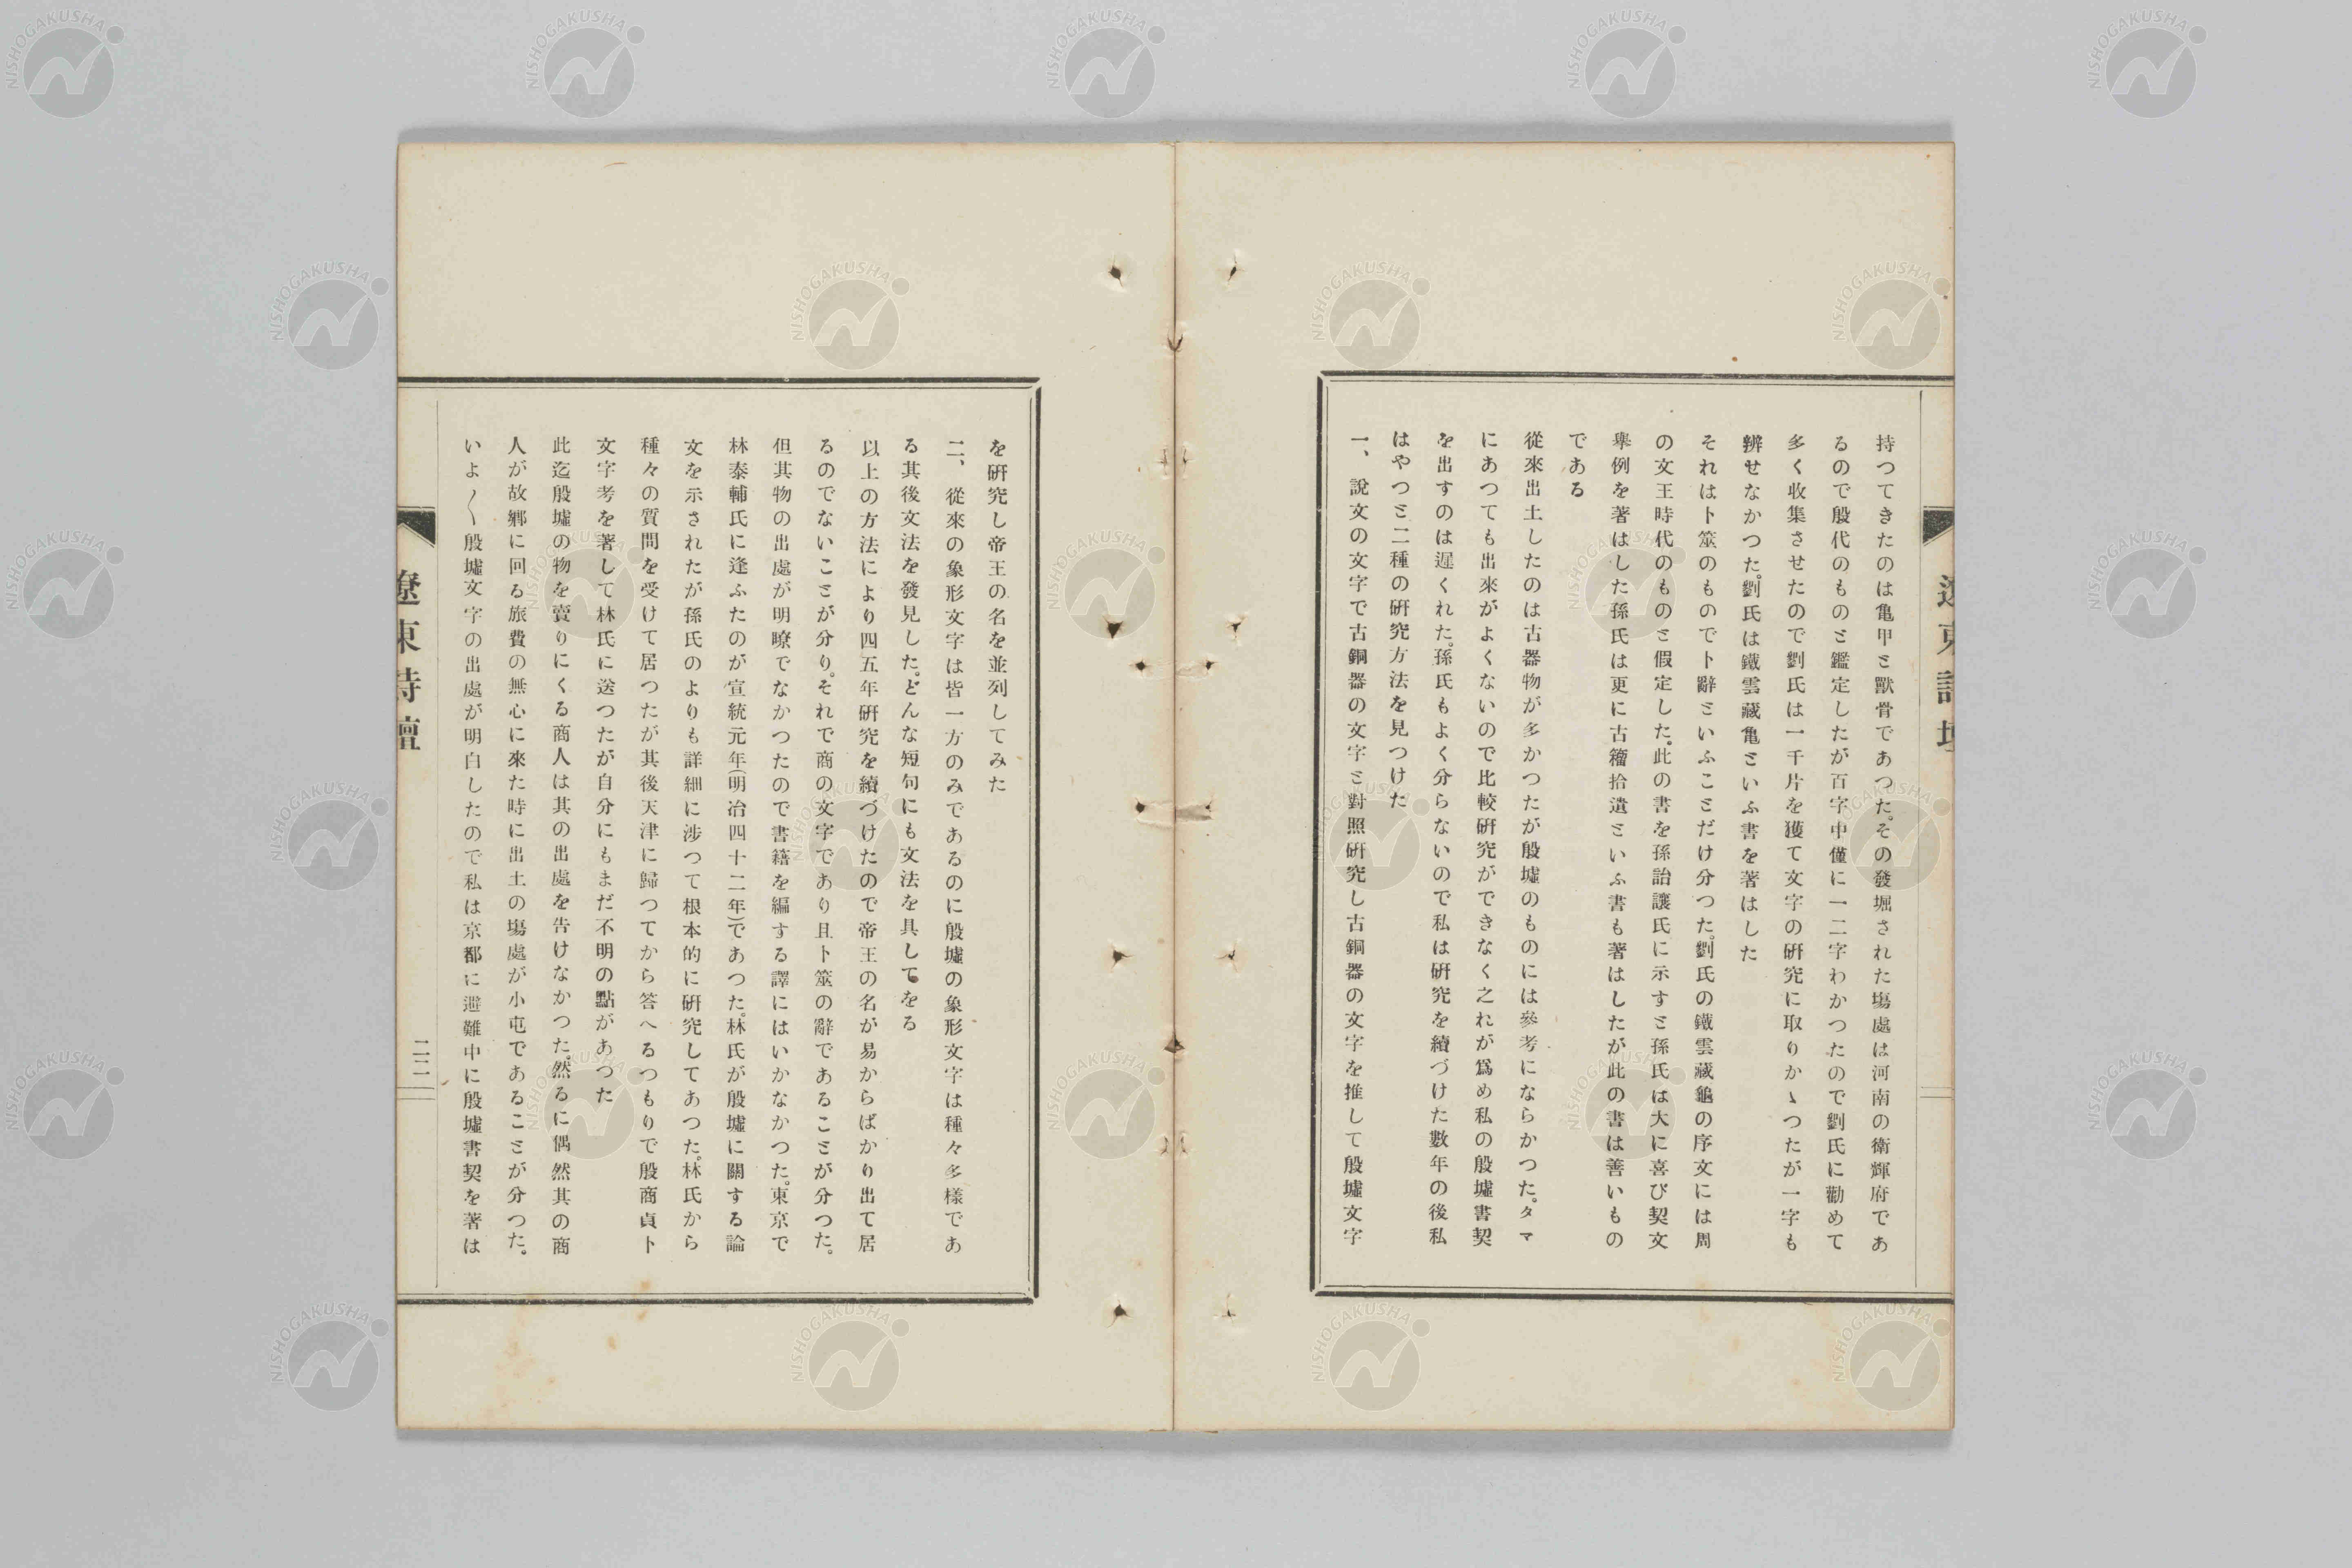 持つてきたのは亀甲と獸骨であつた。その發堀された塲處は河南の衛輝府であ
るので殷代のものと鑑定したが百字中僅に一二字わかつたので劉氏に勸めて
多く收集させたので劉氏は一千片を獲て文字の硏究に取りかゝつたが一字も
辨せなかつた。劉氏は鐵雲藏亀といふ書を著はした
それは卜筮のもので卜辭といふことだけ分つた。劉氏の鐵雲藏龜の序文には周
の文王時代のものと假定した。此の書を孫詒讓氏に示すと孫氏は大に喜び契文
擧例を著はした孫氏は更に古籒拾遺といふ書も著はしたが此の書は善いもの
である
從來出土したのは古器物が多かつたが殷墟のものには參考にならかつた。タマ
にあつても出來がよくないので比較硏究ができなく之れが爲め私の殷墟書契
を出すのは遲くれた。孫氏もよく分らないので私は硏究を續づけた數年の後私
はやつと二種の硏究方法を見つけた
一、說文の文字で古銅器の文字と對照硏究し古銅器の文字を推して殷墟文字
を硏究し帝王の名を並列してみた
二、從來の象形文字は皆一方のみであるのに殷墟の象形文字は種々多樣であ
る其後文法を發見した。どんな短句にも文法を具してをる
以上の方法により四五年硏究を續づけたので帝王の名が易からばかり出て居
るのでないことが分り。それで商の文字であり且卜筮の辭であることが分つた。
但其物の出處が明瞭でなかつたので書籍を編する譯にはいかなかつた。東京で
林泰輔氏に逢ふたのが宣統元年(明治四十二年)であつた。林氏が殷墟に關する論
文を示されたが孫氏のよりも詳細に涉つて根本的に硏究してあつた。林氏から
種々の質問を受けて居つたが其後天津に歸つてから答へるつもりで殷商貞卜
文字考を著して林氏に送つたが自分にもまだ不明の點があつた
此迄殷墟の物を賣りにくる商人は其の出處を告けなかつた。然るに偶然其の商
人が故鄕に回る旅費の無心に來た時に出土の塲處が小屯であることが分つた。
いよ〱殷墟文字の出處が明白したので私は京都に避難中に殷墟書契を著は
遼東詩壇
二二
遼東詩壇
NISHOGAKUSHA